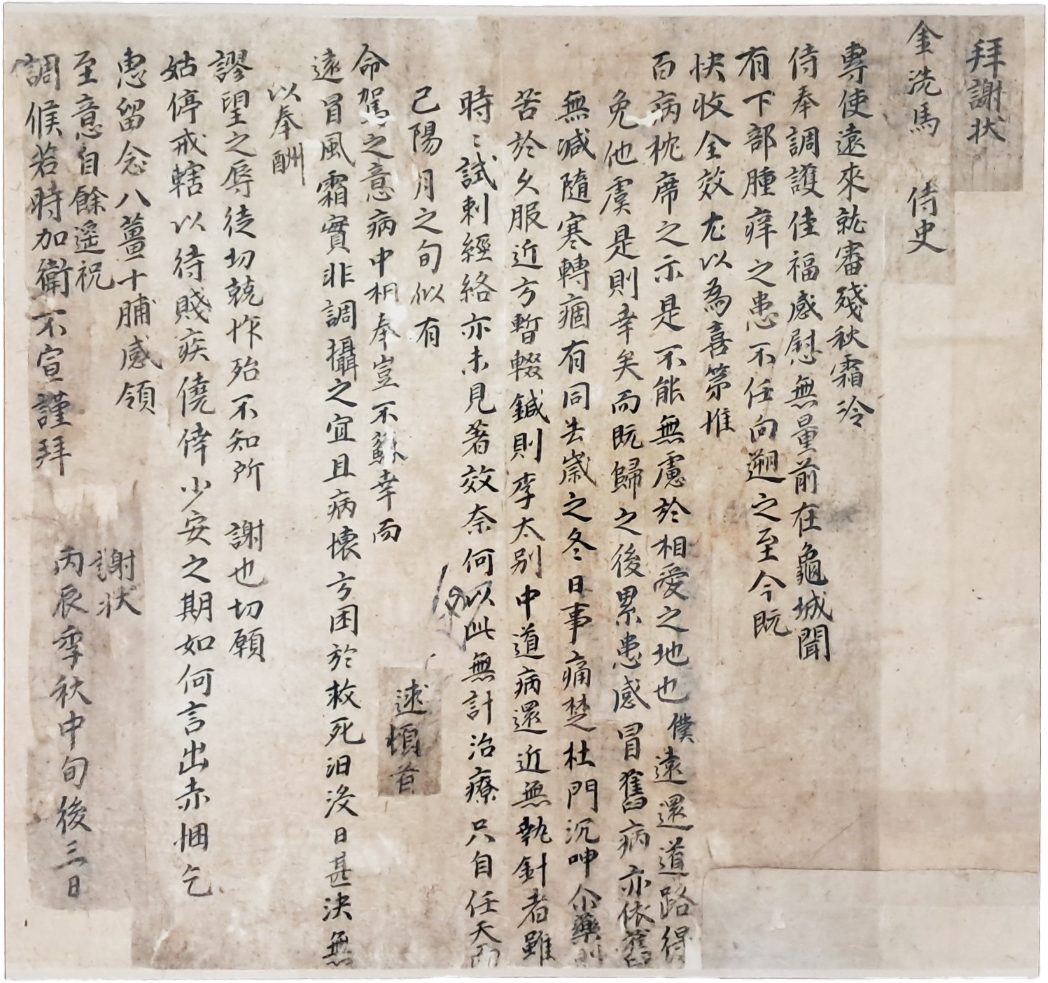 拜謝狀
金洗馬 侍史
專使遠來就審殘秋霜冷
侍奉調護佳福感慰無量前在龜城聞
有下部腫痒之患不任向遡之至今既
快收全效尤以為喜第惟
百病枕席之示是不能無慮於相愛之地也僕遠還道路得
免他虞是則幸矣而既歸之後累患感冒舊病亦依舊
無減隨寒轉痼有同去歲之冬日事痛楚杜門沉呻尒藥則
苦於久服近方暫輟鍼則李太別中道病還近無執針者雖
時〻試刺經絡亦未見著效奈何以此無計治療只自任天而
已陽月之旬似有
命駕之意病中枊奉豈不蘇幸而
遠冒風霜實非調攝之宜且病懐方困於救死汨沒日甚決無
以奉酬
謬望之辱徒切兢怍殆不知所 謝也切願
姑停戒轄以待賤疾僥倖少安之期如何言出赤悃乞
恵留念八薑十脯感領
至意自餘遥祝
調候若時加衛不宣謹拜
謝狀
丙辰季秋中旬後三日
逑頓首